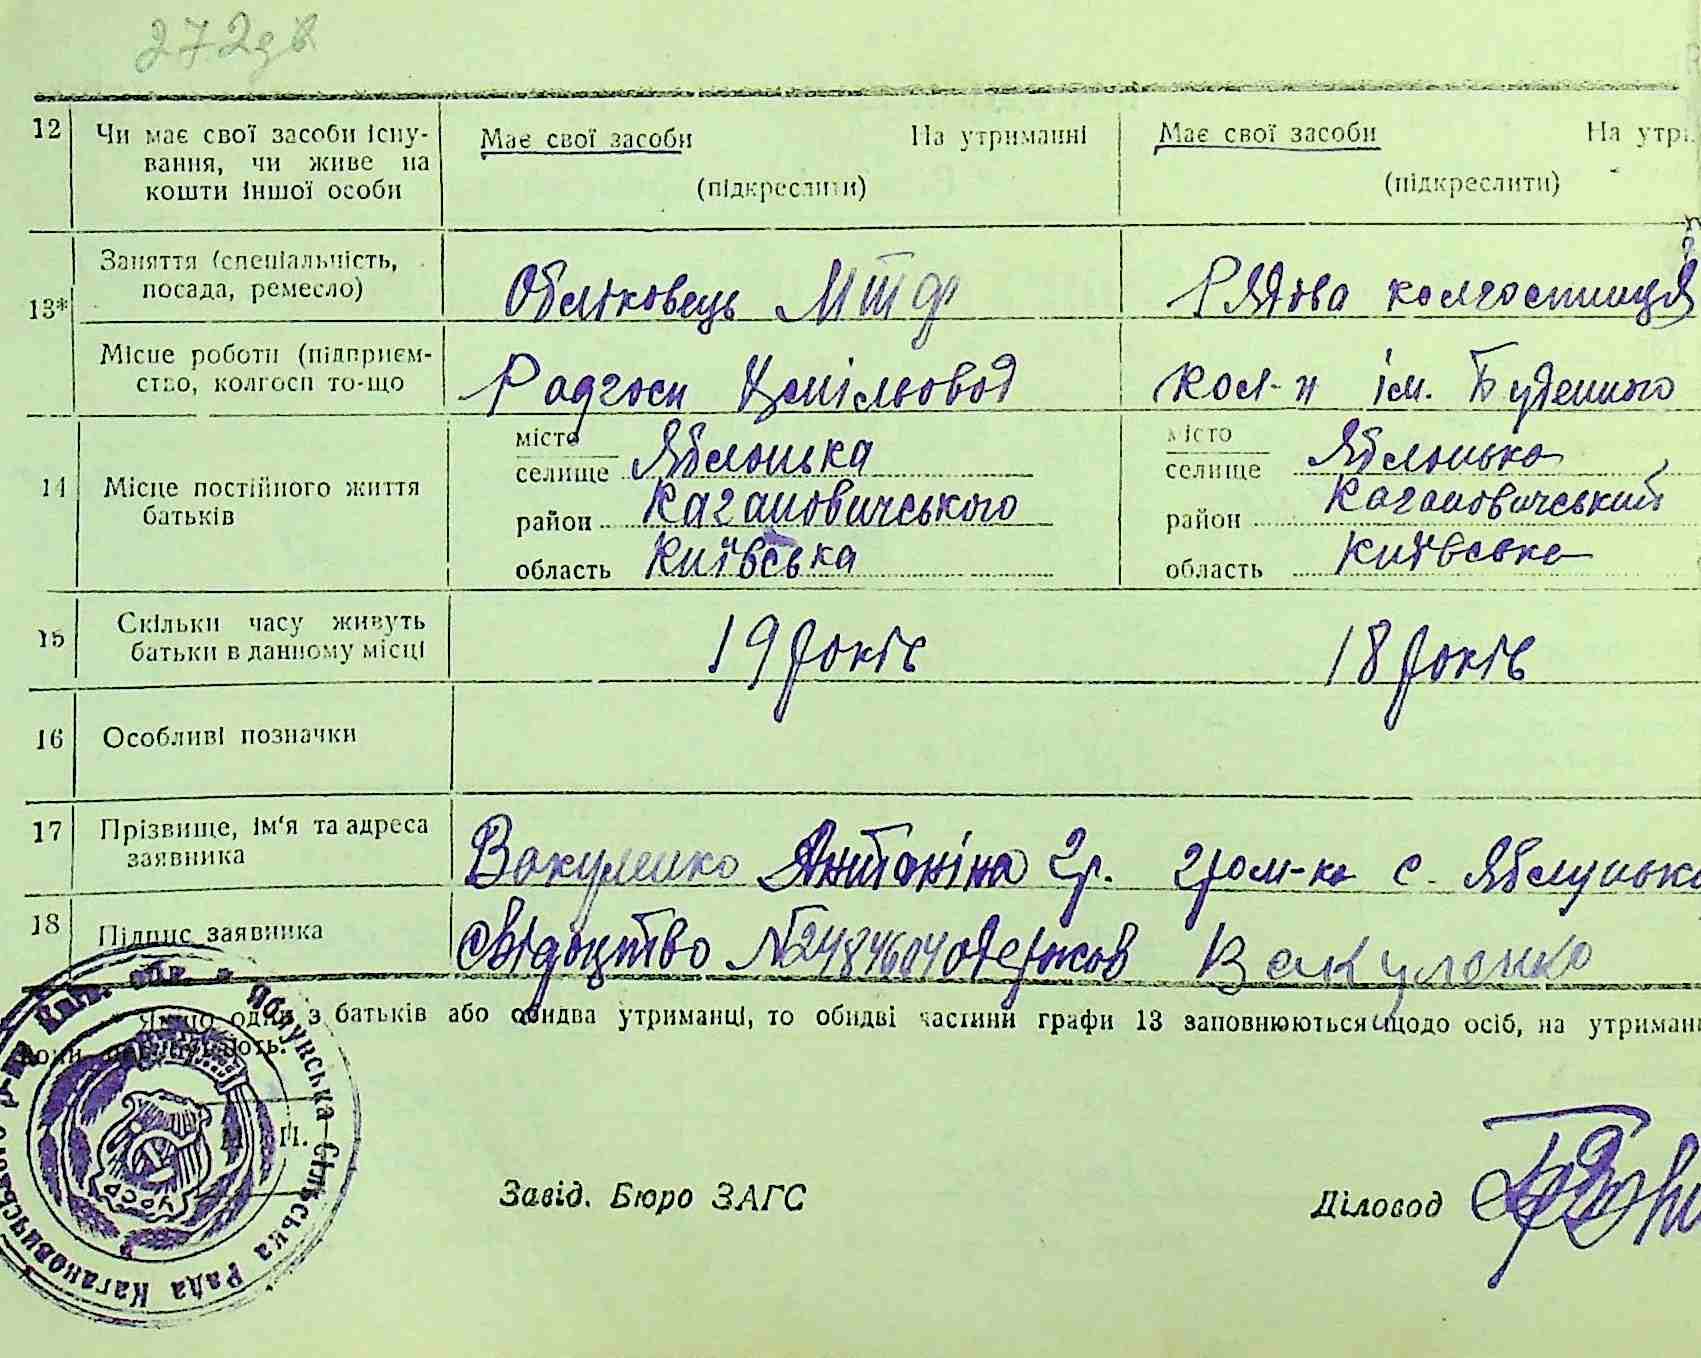 272 зв
12 Чи має свої засоби існу- Має свої засоби На утриманні Має свої засоби На утри
вання, чи живе на (підкреслити) (підкреслити)
кошти іншої особи
13* Заняття (спеціальність, Обліковець МТФ Рядова колгоспниця
посада, ремесло)
Місце роботи (підприєм- Радгосп Хмільовод Кол-п ім. Буденного
ство, колгосп то-що
14 Місце постійного життя місто Яблонька місто Яблонька
батьків селище селище
район Кагановичського район Кагановичський
область Київська область Київська
15 Скільки часу живуть 19 років 18 років
батьки в данному місці
16 Особливі позначки
17 Прізвище, ім'я та адреса Вакуленко Антоніна Гр. гром-ка с. Яблунька
заявника
18 Підпис заявника свідоцтво №2484604 одержав Вакуленко
* Якщо один з батьків або обидва утриманці, то обидві частини графи 13 заповнюються щодо осіб, на утриман
вони
П.
Яблунська Сільська Рада Кагановичського р-ну Київ. обл.
УСРР
Завід. Бюро ЗАГС Діловод